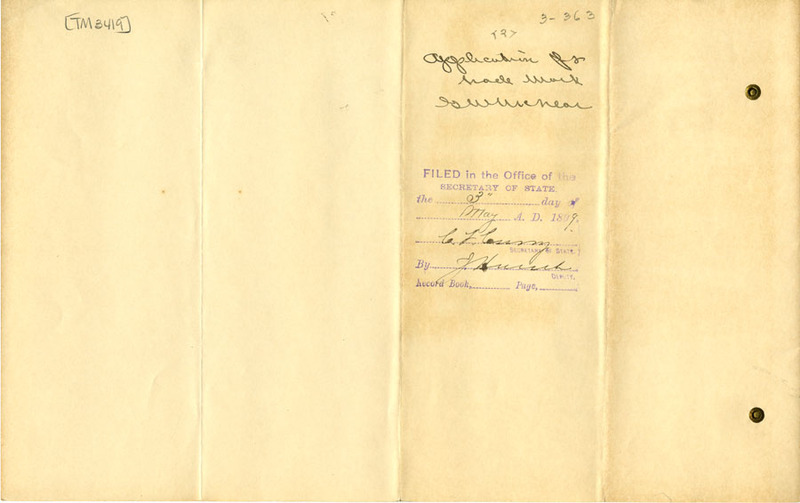 [TM3419]
3-363
<2>
Application for
trade mark
FILED in the Office of the
SECRETARY OF STATE
the 3" day of
May A. D. 1899.
C F Curry
SECRETARY OF STATE.
By J Hoesch
DEPUTY.
Record Book, Page,